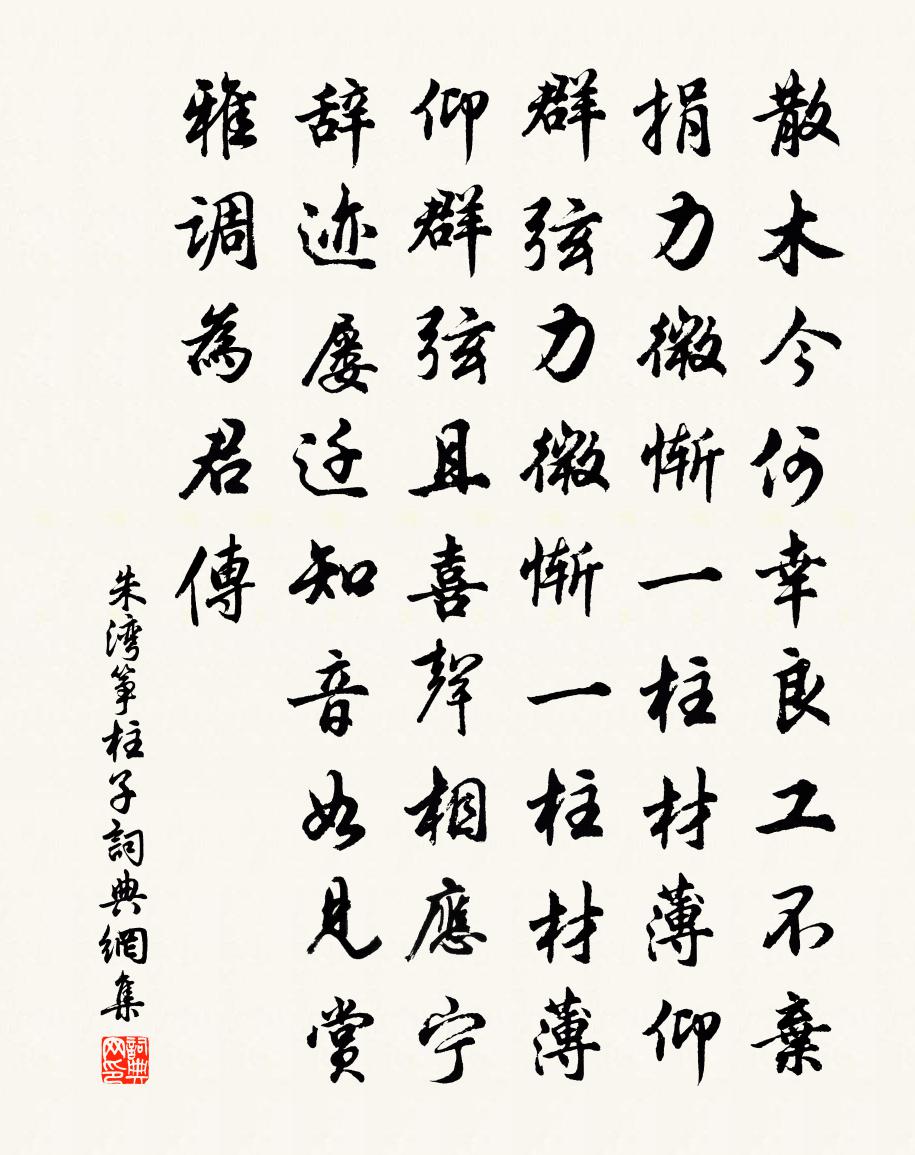 散木今何幸良工不棄
捐力微惭一柱材薄仰
群弦力微惭一柱材薄
仰群弦且喜聲相應宁
辞迹屡迁知音如见赏
雅调為君傳
朱湾筝柱子詞典網集
詞典网印